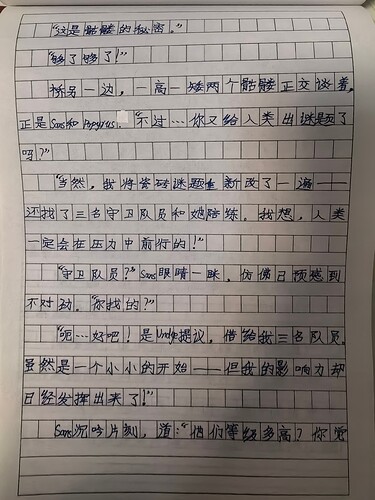 “这是骷髅的秘密。”
“够了够了！”
桥另一边，一高一矮两个骷髅正交谈着。
正是Sans和Papyrus. “不过…你又给人类出谜题了
吗？”
“当然，我将瓷砖谜题重新改了一遍——
还找了三名守卫队员和她陪练。我想，人类
一定会在压力中前行的！”
“守卫队员？”Sans眼睛一眯，仿佛已预感到
不对劲。“你找的？”
“呃…好吧！是Undyne提议，借给我三名队员。
虽然是一个小小的开始——但我的影响力却
已经发挥出来了！”
Sans沉吟片刻，道：“他们等级多高？你觉